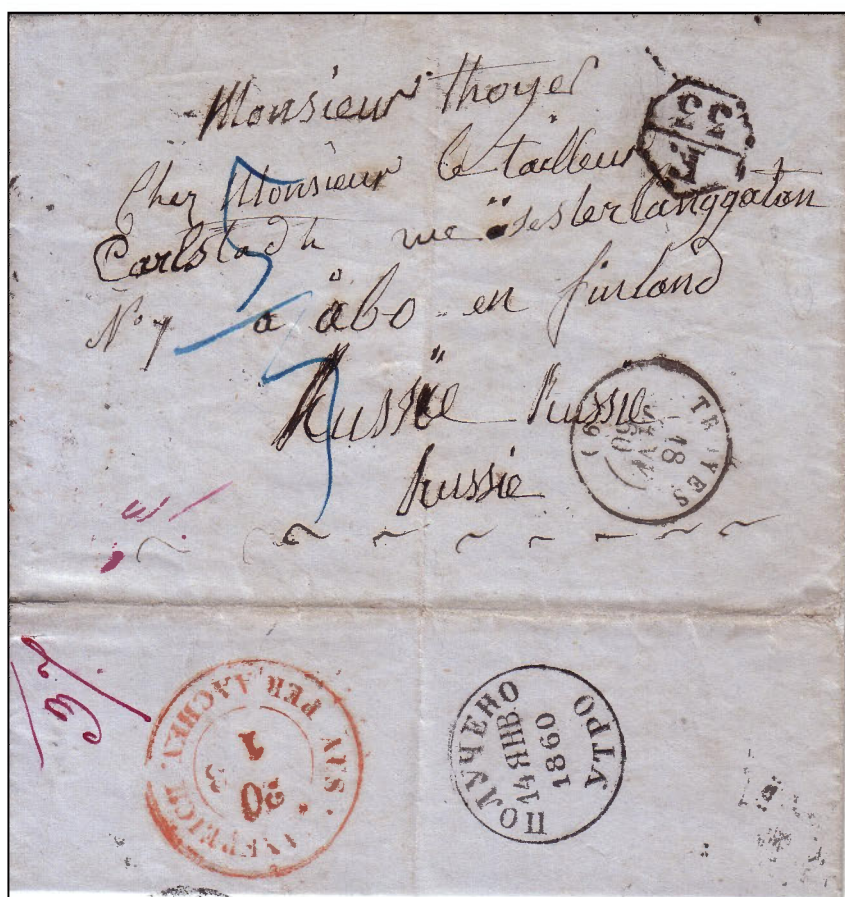 Monsieur thoyer
Chez Monsieur le tailleur
Carlstadh rue österlanggatan
No 7 a äbo en finland
Russie Russie
Russie
TROYES
18
JANV.
60
(9)
F.
33
AUS FRANKREICH PER AACHEN.
20
1
ПОЛУЧЕНО
14 ЯНВ
1860
УТРО